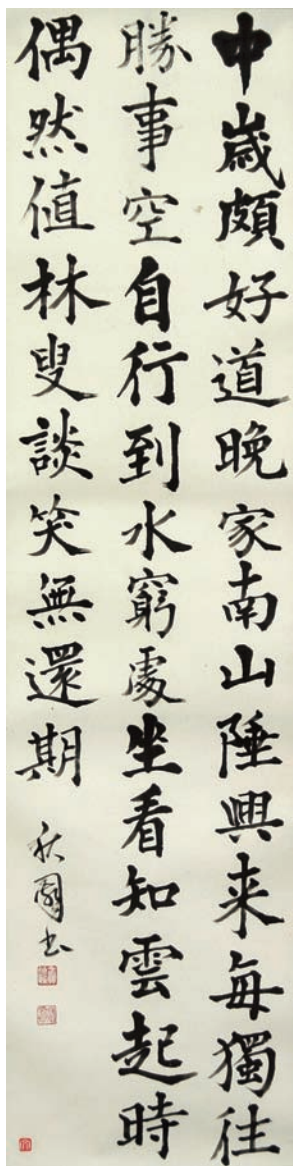 中歲頗好道晚家南山陲興来每獨往
勝事空自行到水窮處坐看知雲起時
偶然值林叟談笑無還期
秋書